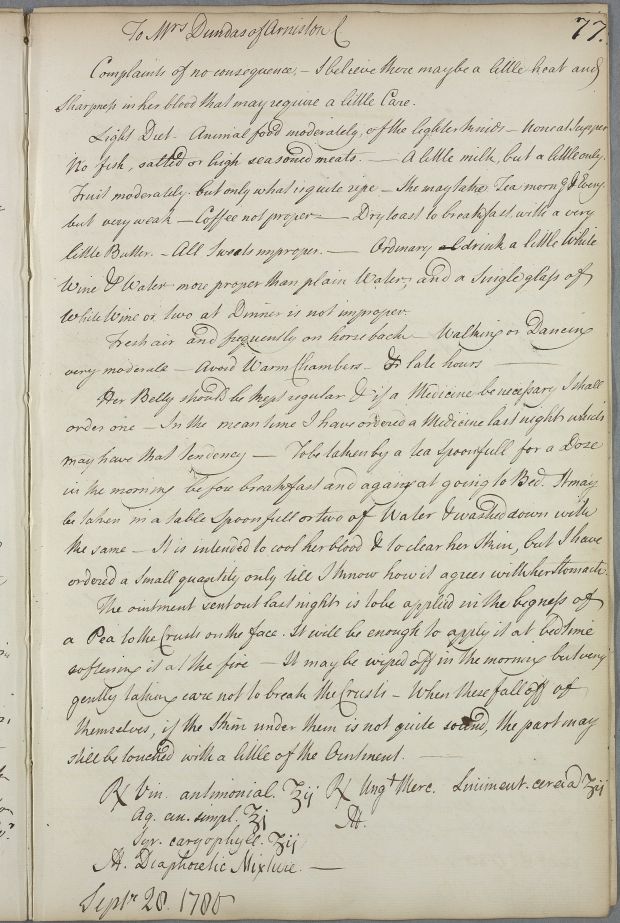 To Mrs Dundas of Arniston
77.
Complaints of no consequence. – I believe there may be a little heat and
sharpness in her blood that may require a little Care.
Light Diet – Animal food moderately, of the lighter kinds – no meat Supper
No fish, salted or high seasoned meats. — A little milk, but a little only
Fruit moderately. but only what is quite ripe – She may take Tea morng & Eveng
but very weak – Coffee not proper – Dry toast to breakfast, with a very
little Butter. – All Sweets improper. – Ordinary drink a little White
Wine & Water more proper than plain Water, and a Single glass of
White Wine or two at Dinner is not improper.
Fresh air and frequently on horseback – Walking or Dancing
very moderate – Avoid Warm Chambers – & late hours —
Her Belly should be kept regular & if a Medicine be necessary I shall
order one – In the mean time I have ordered a Medicine last night which
may have that tendency – To be taken by a tea spoonfull for a Dose
in the morning before breakfast and again at going to Bed. It may
be taken in a table spoonfull or two of Water & washed down with
the same – It is intended to cool her blood & to clear her Skin, but I have
ordered a small quantity only till I know how it agrees with her Stomach.
The ointment sent out last night is to be applied in the bigness of
a Pea to the Crusts on the face. It will be enough to apply it at bedtime
softening it at the fire – It may be wiped off in the morning but very
gently taking care not to break the Crusts – When these fall off of
themselves, if the Skin under them is not quite sound, the part may
still be touched with a little of the Ointment. —
℞ Vin. antimonial. ʒij ℞ Ungt Merc. Liniment. cerei a ʒij
Aq. cin. simpl. ʒj M.
Syr. caryophyll. ʒij
M. Diaphoretic Mixture. —
Septr 28. 1780